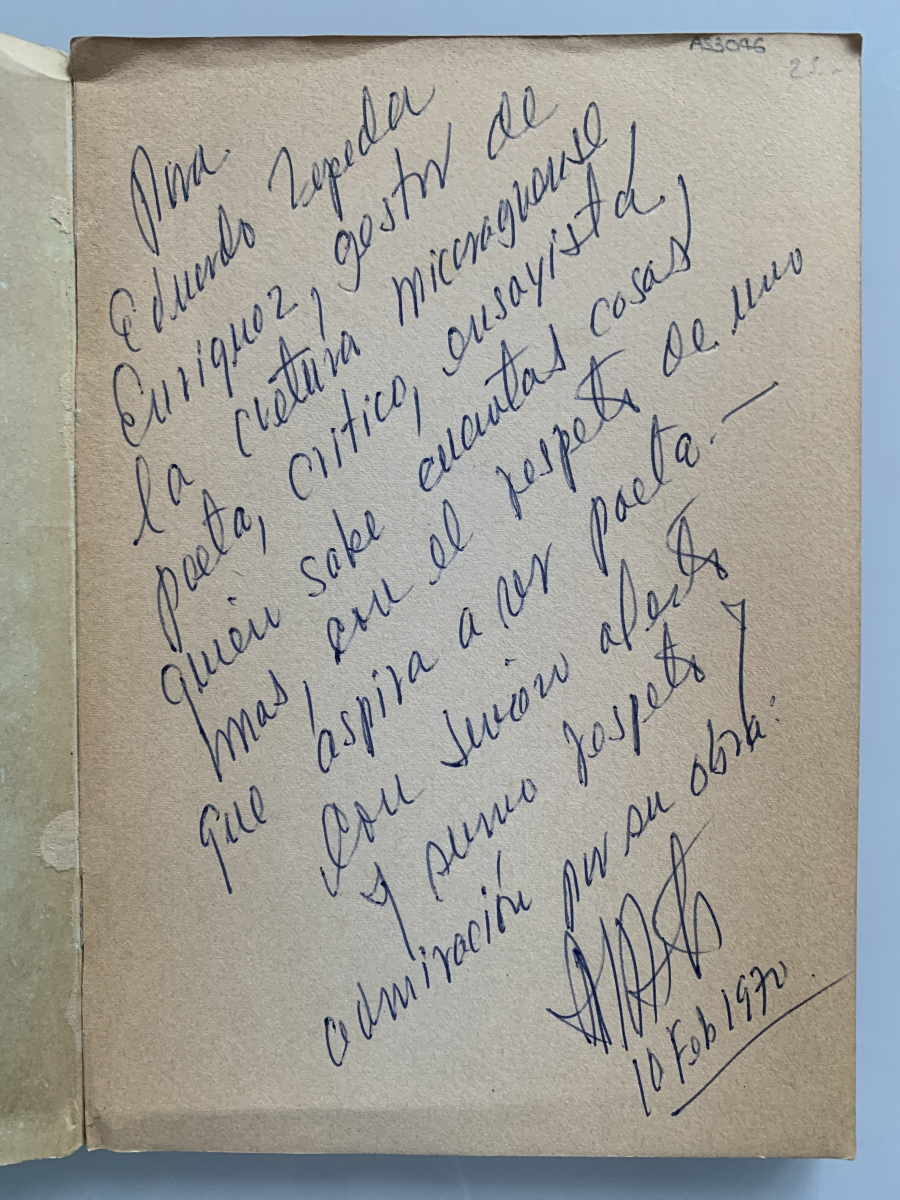 AS3046
25.-
Para
Eduardo Zepeda
Enriquez, gestor de
la cultura nicaraguense,
poeta, critico, ensayista,
quién sabe cuantas cosas
mas, con el respeto de uno
que aspira a ser poeta.—
Con sincero afecto
y sumo respeto y
admiración por su obra.
10 Feb 1970.